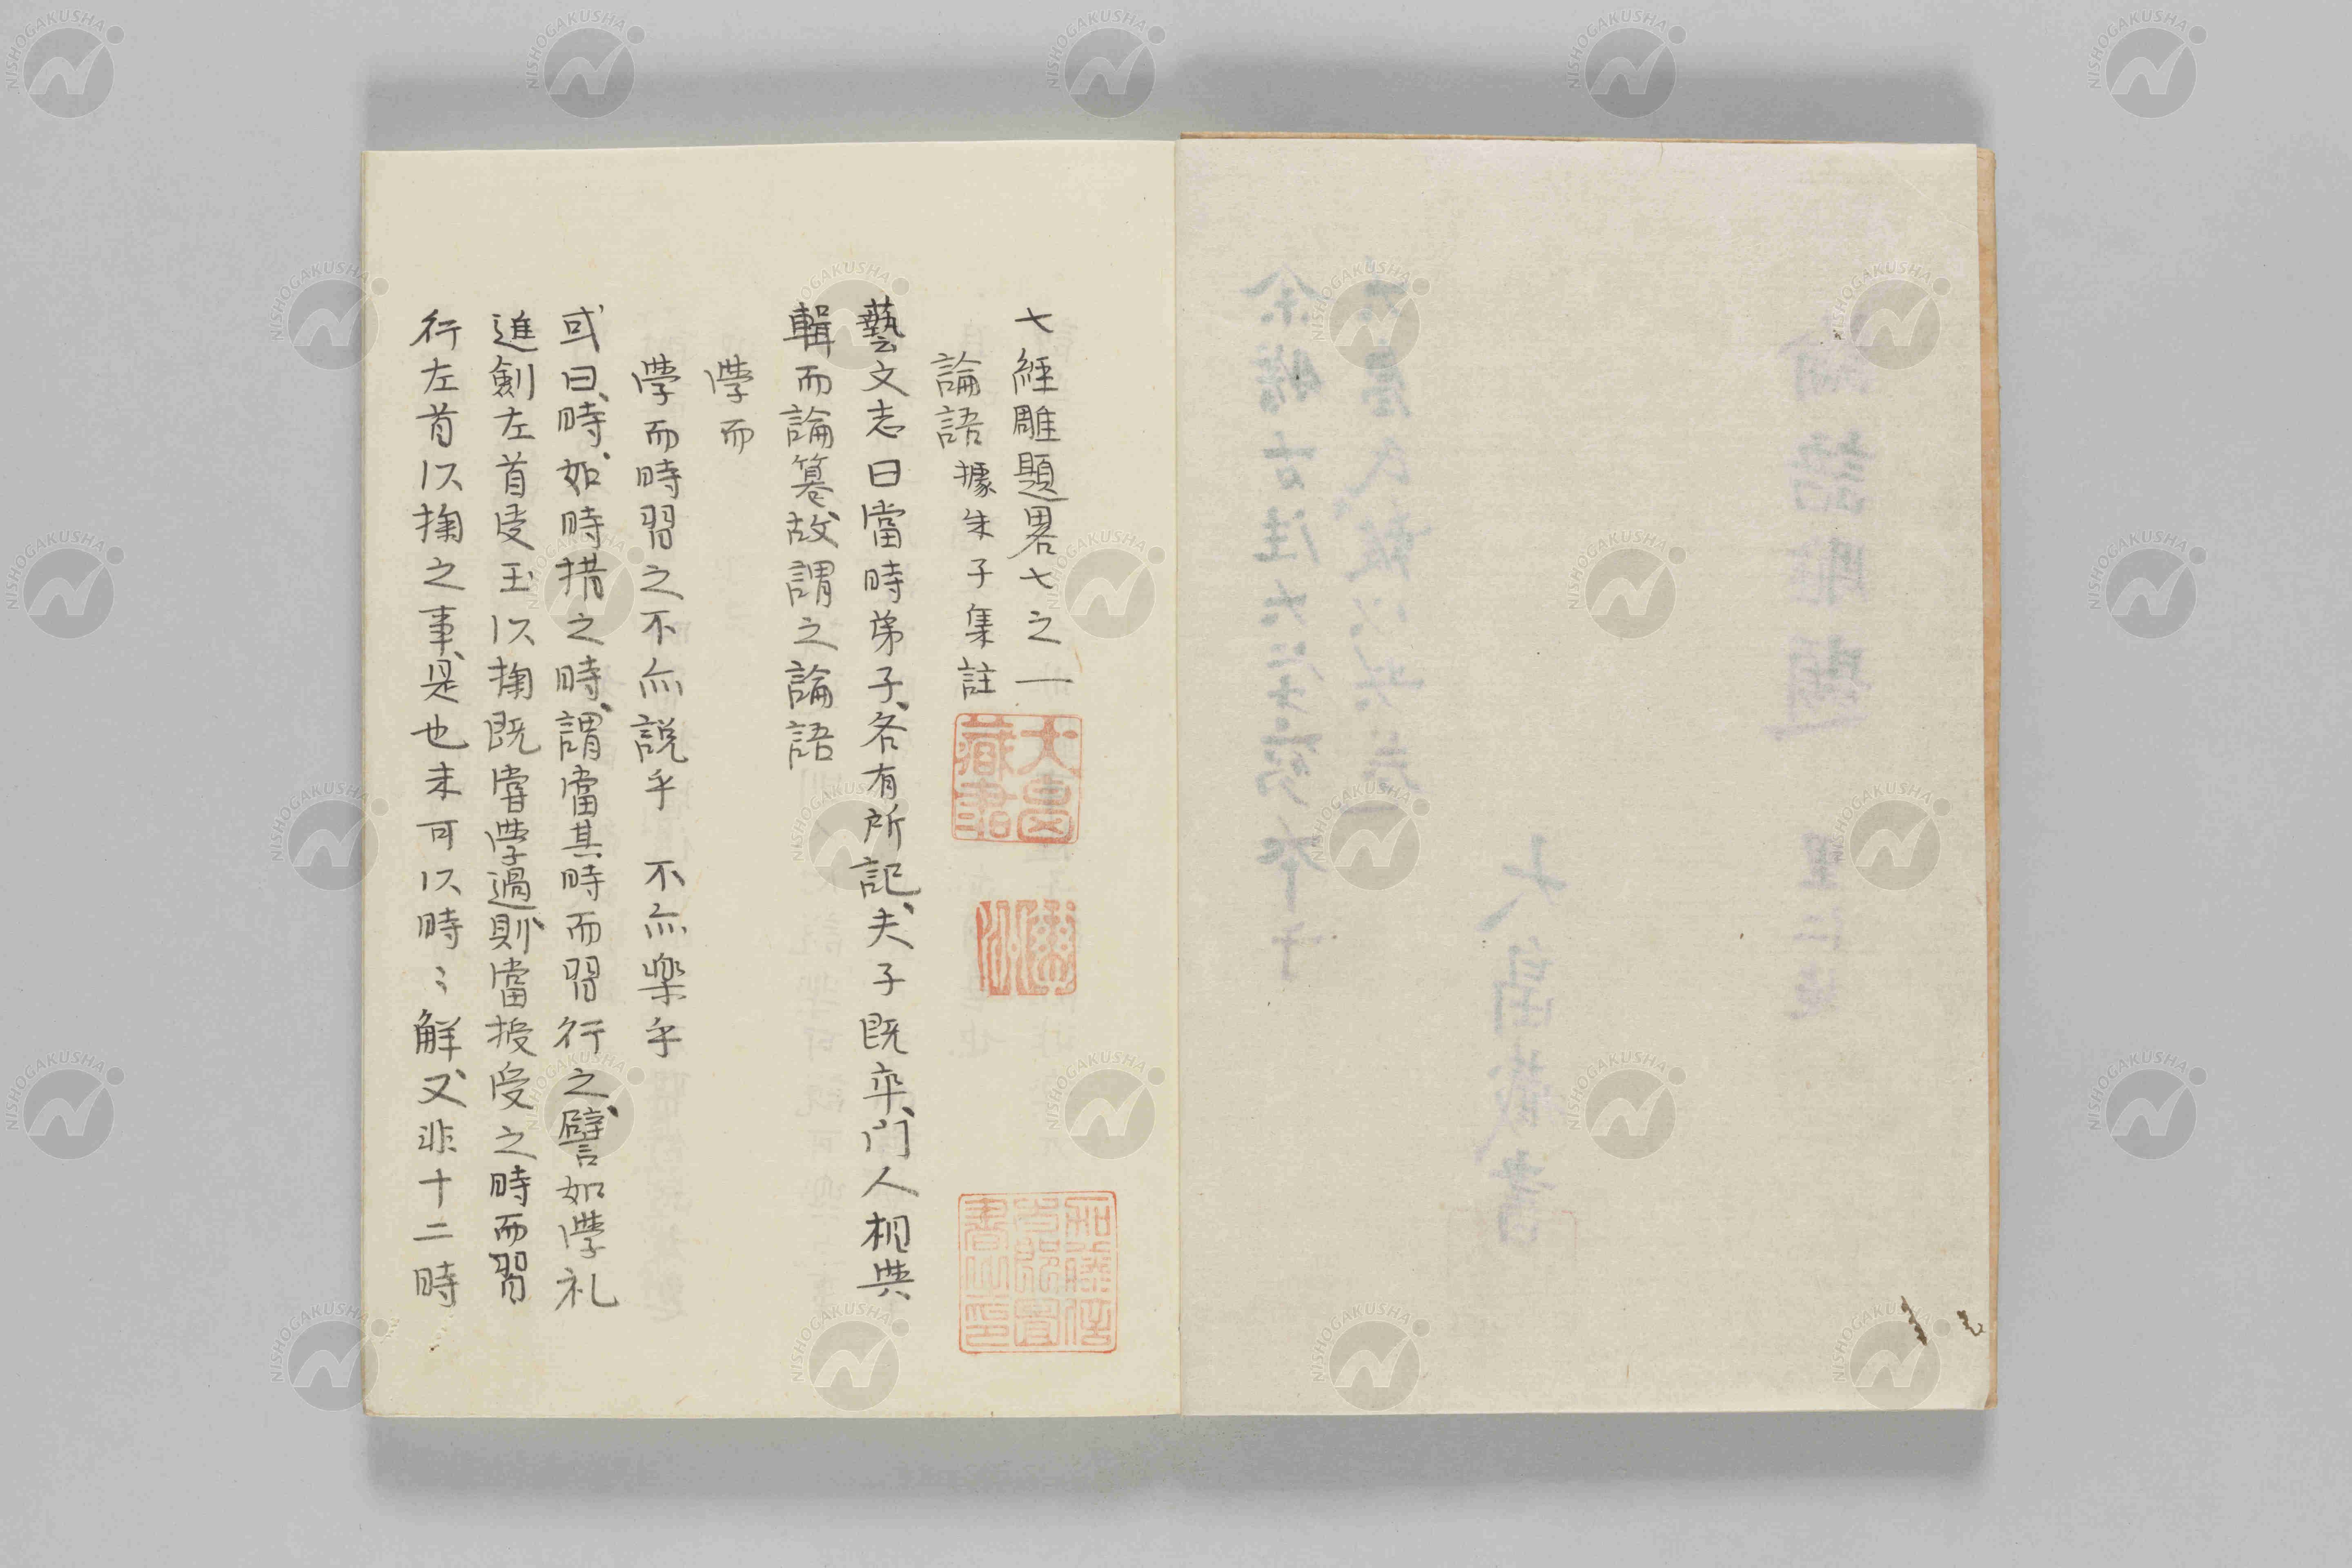 七經雕題畧七之一
論語 據朱子集註
藝文志曰當時弟子各有所記夫子既卒門人相與
輯而論篹故謂之論語
學而
學而時習之不亦説乎 不亦樂乎
或曰時如時措之時謂當其時而習行之譬如學礼
進劍左首受玉以掬既嘗學過則當授受之時而習
行左首以掬之事是也未可以時〻解又非十二時
大畠藏書
論語雕題 里仁迄
大畠藏書
NISHOGAKUSHA